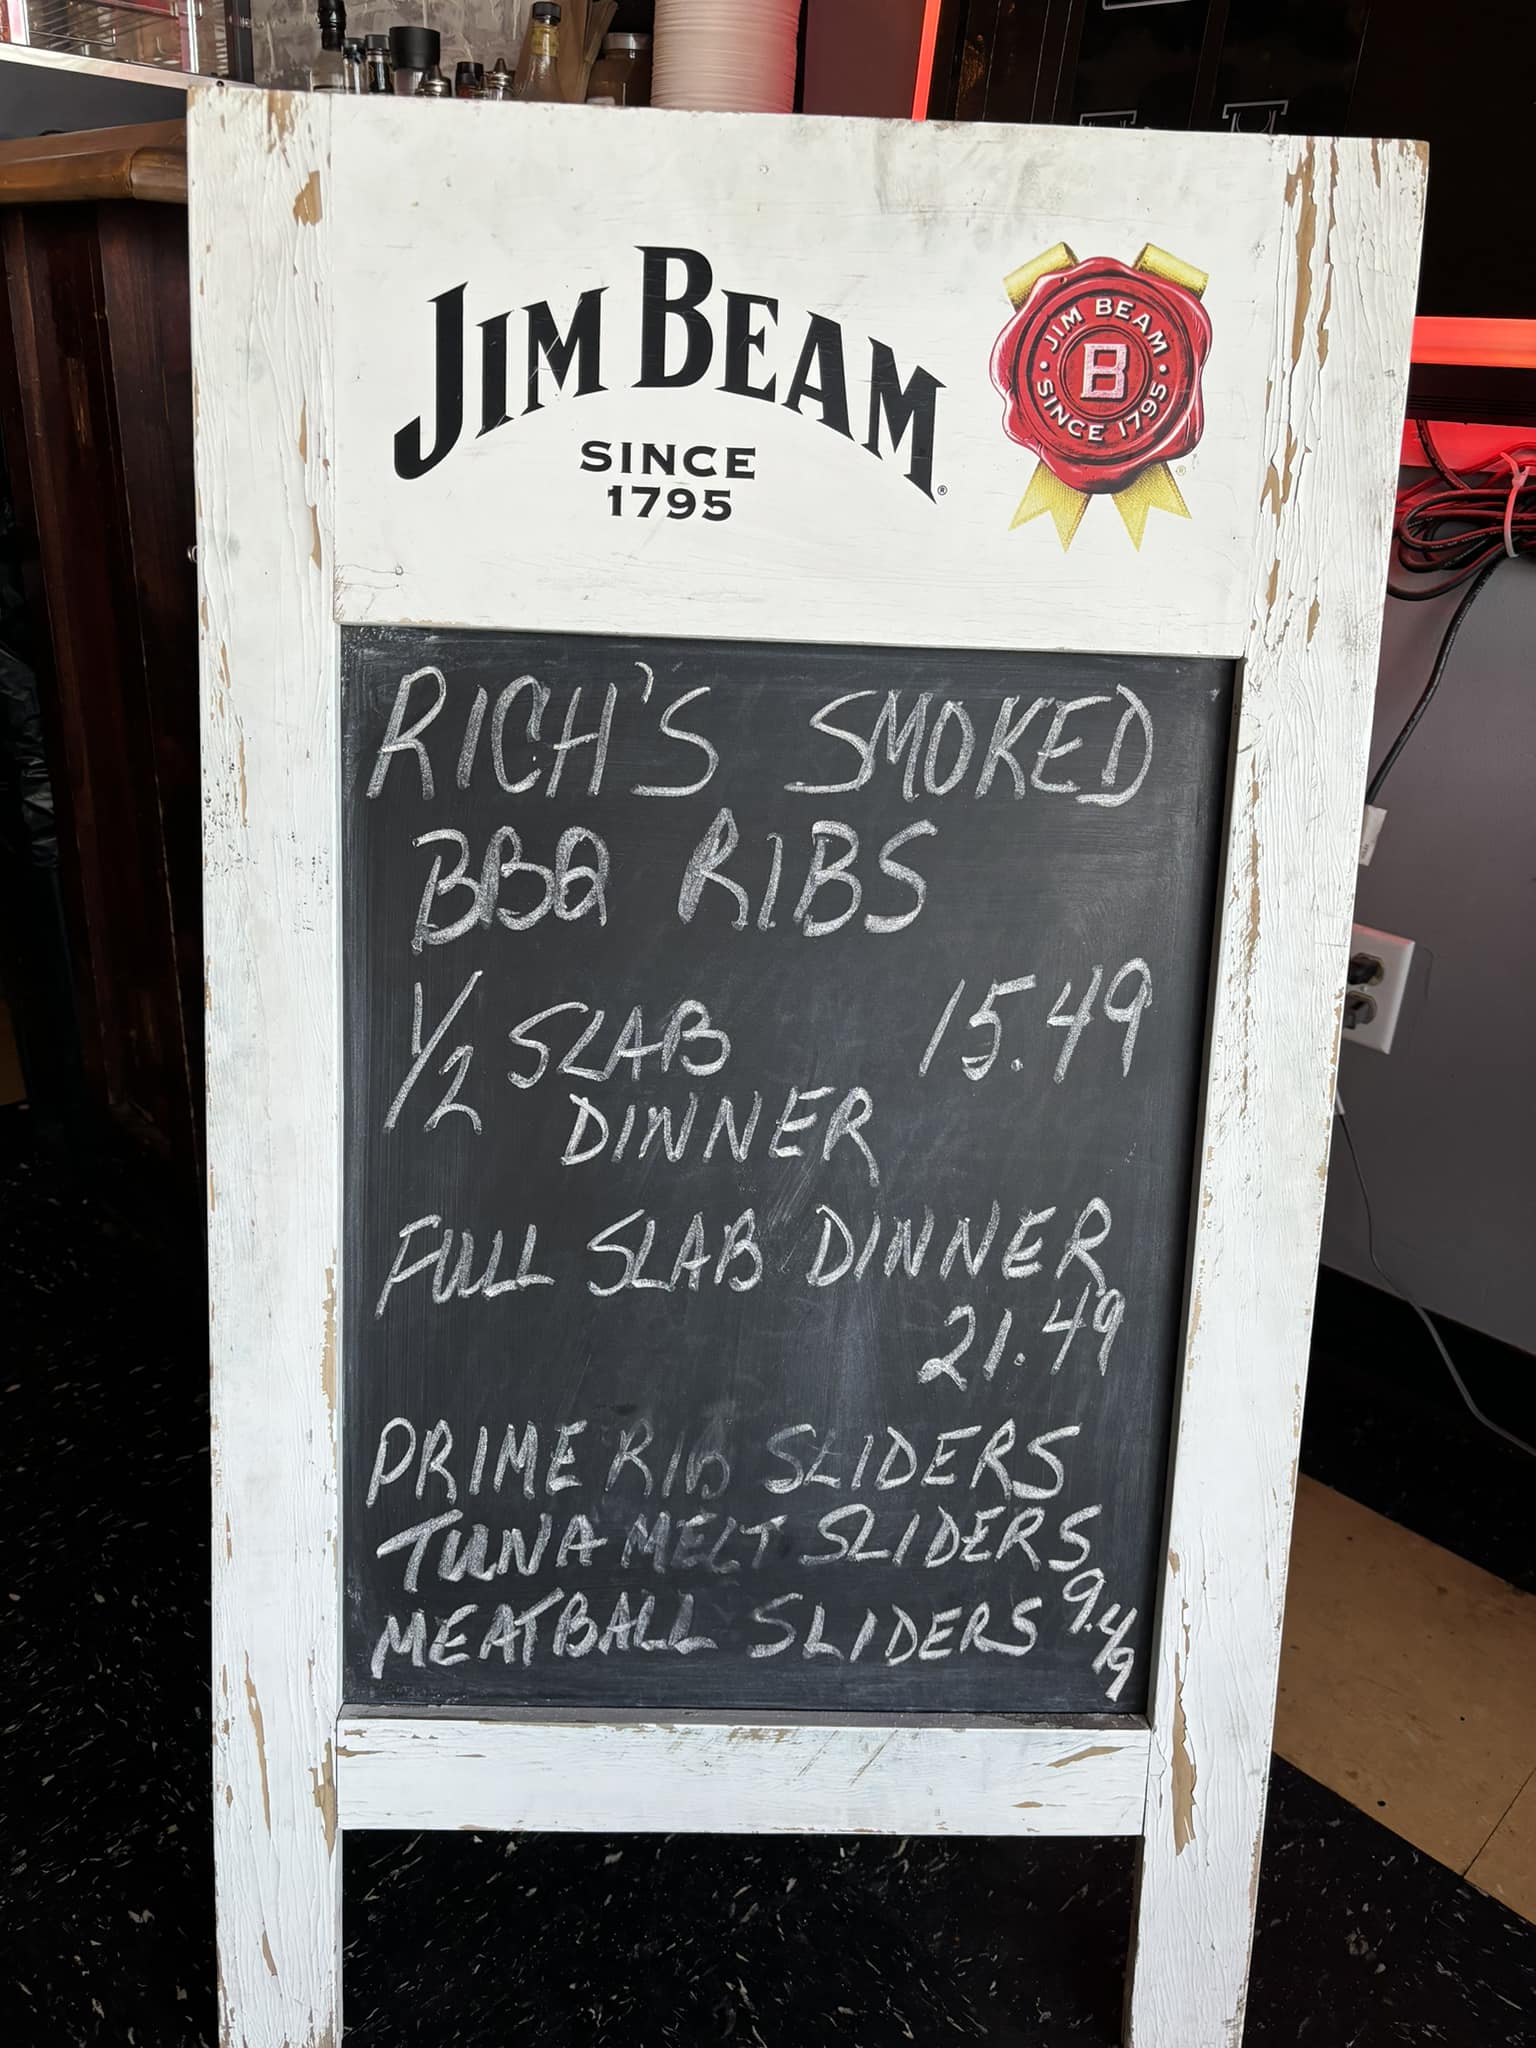 JIM BEAM
SINCE
1795
JIM BEAM
B
SINCE 1795
RICH'S SMOKED
BBQ RIBS
1/2 SLAB 15.49
DINNER
FULL SLAB DINNER
21.49
PRIME RIB SLIDERS
TUNA MELT SLIDERS
MEATBALL SLIDERS 9.49